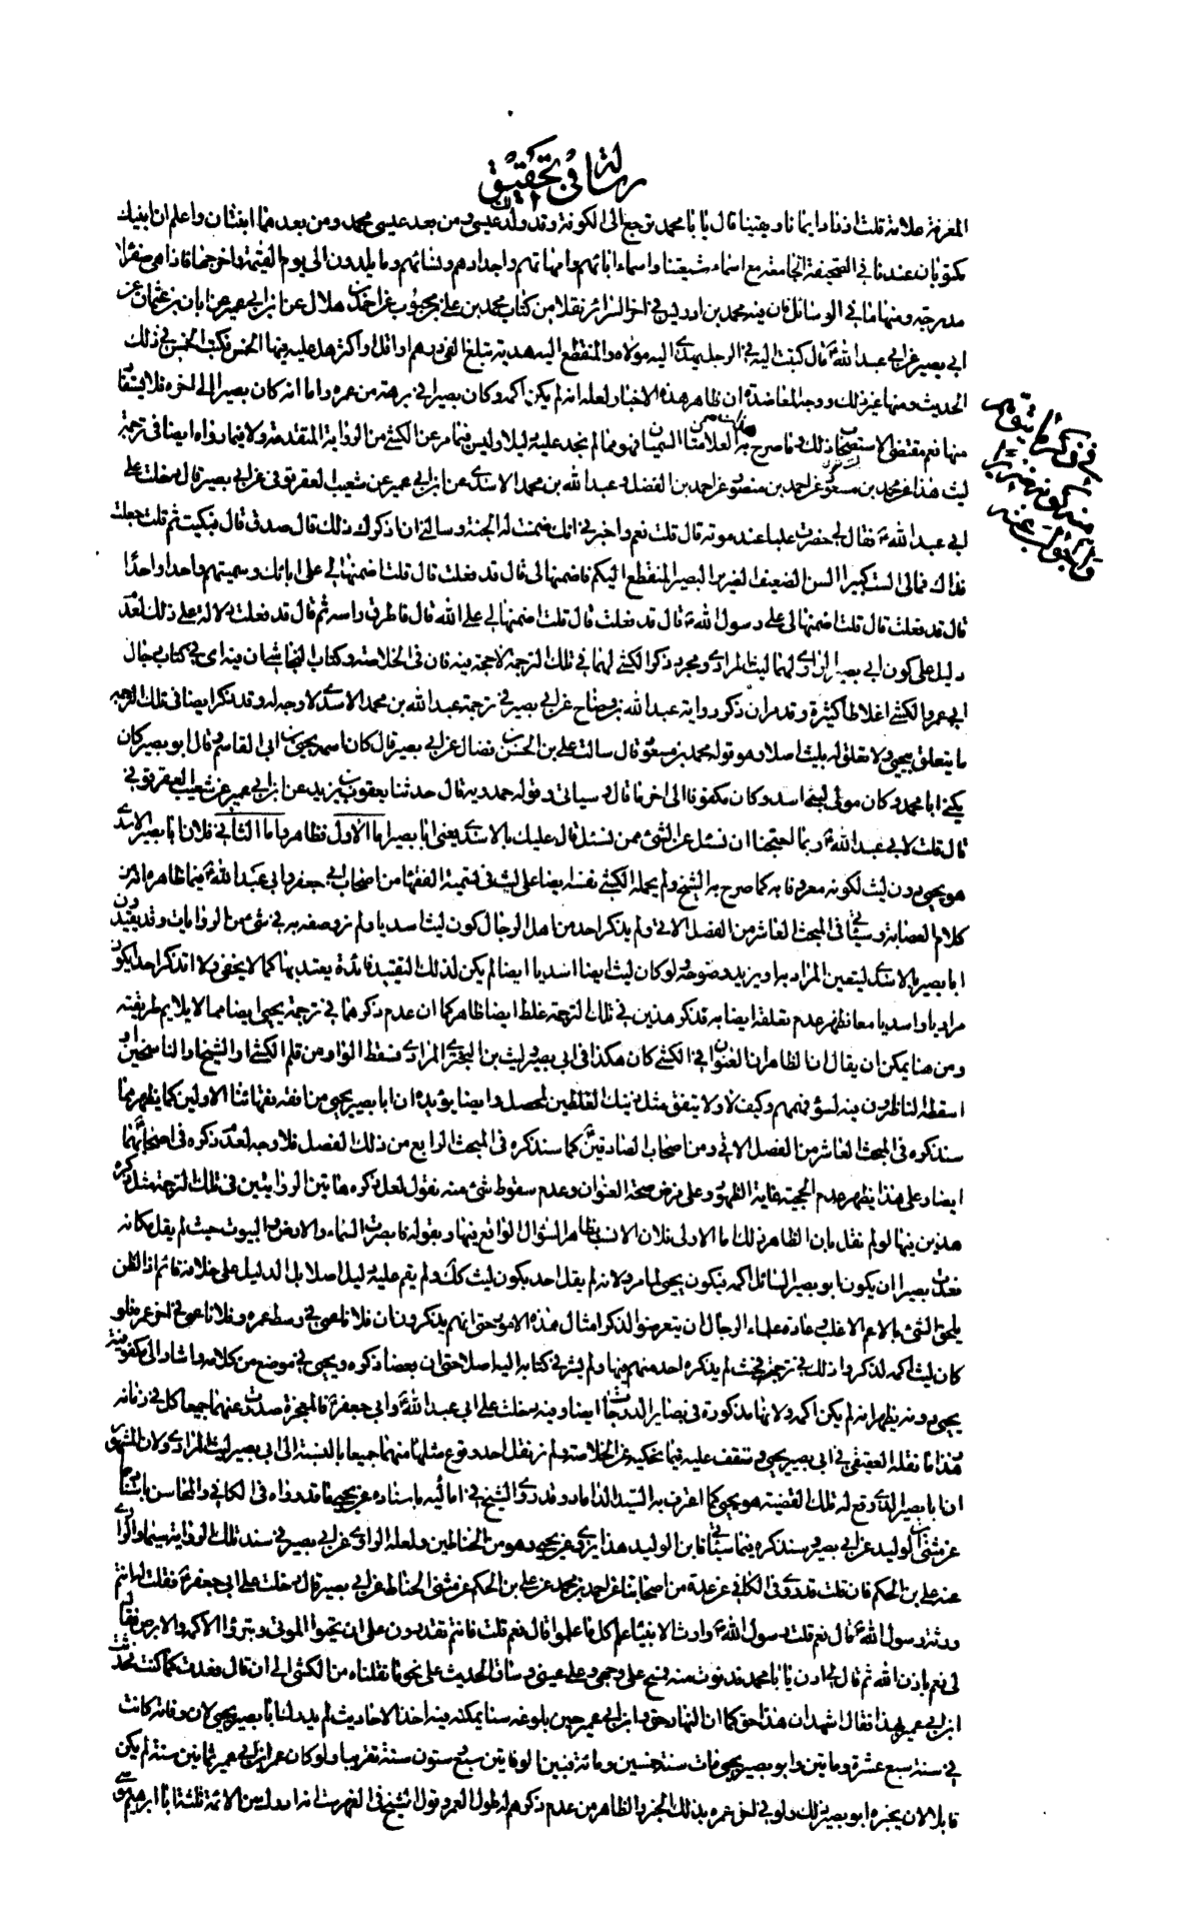 رسالة في تحقيق
المعرفة علامة قلت اذنا وايمانا ويقينا قال يا با محمد ترجع الى الكوفة وقد ولد لك عيسى ومن بعد عيسى محمد ومن بعدهما ابنتان واعلم ان ابنيك
مكتوبان عندنا في الصحيفة الجامعة مع اسماء شيعتنا واسماء ابائهم وامهاتهم واجدادهم ونسائهم وما يلدون الى يوم القيمة واخرجها فاذا هي صفراء
مدرجة ومنها ما في الوسائل فان فيه محمد بن ادريس في اخر السرائر نقلا من كتاب محمد بن علي بن محبوب عن احمد بن هلال عن ابن ابي عمير عن ابان بن عثمان عن
ابي بصير عن ابي عبد الله ع قال كتبت اليه في الرجل يهدي اليه مولاه والمنقطع اليه هدية تبلغ الفي درهم او اقل او اكثر هل عليه فيها الخمس فكتب الخمس في ذلك
الحديث ومنها غير ذلك ووجه المعاضدة ان ظاهر هذه الاخبار لعله انه لم يكن اكمه وكان بصيرا في برهة من عمره واما انه كان بصيرا الى اخره فلا يستفاد
منها نعم مقتضى الاستصحاب ذلك و ما صرح به العلامتان السميان فهو مما لم نجد عليه دليلا وليس فيما مر عن الكشي من الرواية المتقدمة ولا فيما رواه ايضا في ترجمة
ليث هذا عن محمد بن مسعود عن احمد بن منصور عن احمد بن الفضل وعبد الله بن محمد الاسدي عن ابن ابي عمير عن شعيب العقرقوفي عن ابي بصير قال دخلت على
ابي عبد الله ع فقال لي حضرت علباء عند موته قال قلت نعم واخبرني انك ضمنت له الجنة وسالني ان اذكرك ذلك قال صدق قال فبكيت ثم قلت جعلت
فداك فمالي الست كبير السن الضعيف الضرير البصير المنقطع اليكم فاضمنها لي قال قد فعلت قال قلت اضمنها لي على ابائك وسميتهم واحدا واحدا
قال قد فعلت قال قلت اضمنها لي على رسول الله ص قال قد فعلت قال قلت اضمنها لي على الله قال فاطرق راسه ثم قال قد فعلت دلالة على ذلك لعدم
دليل على كون ابي بصير الراوي لهما ليث المرادي ومجرد ذكر الكشي لهما في تلك الترجمة لا حجة فيه فان في الخلاصة وكتاب النجاشي ان فيه اي في كتاب رجال
ابي عمرو الكشي اغلاطا كثيرة وقد مر ان ذكر رواية عبد الله بن وضاح عن ابي بصير في ترجمة عبد الله بن محمد الاسدي لا وجه له وقد ذكر ايضا في تلك الترجمة
ما يتعلق بيحيى ولا تعلق له بليث اصلا وهو قوله محمد بن مسعود قال سالت علي بن الحسن بن فضال عن ابي بصير قال كان اسمه يحيى بن ابي القاسم وقال ابو بصير كان
يكنى ابا محمد وكان مولى لبني اسد وكان مكفوفا الى اخر ما قال وسياتي وقوله حمدويه قال حدثنا يعقوب بن يزيد عن ابن ابي عمير عن شعيب العقرقوفي
قال قلت لابي عبد الله ع ربما احتجنا ان نسئل عن الشئ فمن نسئل قال عليك بالاسدي يعني ابا بصير اما الاول فظاهر واما الثاني فلان ابا بصير الاسدي
هو يحيى دون ليث لكونه معروفا به كما صرح به الشيخ ولم يحمله الكشي نفسه ايضا على ليث في تسمية الفقهاء من اصحاب ابي جعفر وابي عبد الله ع فيما ظاهره انه من
كلام العصابة وسياتي في المبحث العاشر من الفصل الاتي ولم يذكر احد من اهل الرجال كون ليث اسديا ولم نر وصفه به في شئ من الروايات وقد يقيدون
ابا بصير بالاسدي ليتعين المراد به او يزيد وضوحه ولو كان ليث ايضا اسديا ايضا لم يكن لذلك التقييد فائدة يعتد بها كما لا يخفى ولا تذكر احدا يكون
مراديا واسديا معا فظهر عدم تعلقه ايضا به فذكر هذين في تلك الترجمة غلط ايضا ظاهر كما ان عدم ذكرهما في ترجمة يحيى ايضا مما لا يلايم طريقته
ومن هنا يمكن ان يقال ان الظاهر ان العنوان في الكشي كان هكذا في ابي بصير وليث بن البختري المرادي فسقط الواو من قلم الكشي او الشيخ او الناسخين او
اسقطه الناظرون فيه لسوء فهمهم وكيف لا ولا يتفق مثل ذينك الغلطين لمحصل وايضا يؤيده ان ابا بصير يحيى من افقه فقهائنا الاولين كما يظهر مما
سنذكره في المبحث العاشر من الفصل الاتي ومن اصحاب الصادقين ع كما سنذكره في المبحث الرابع من ذلك الفصل فلا وجه لعدم ذكره في اصحابهما
ايضا وعلى هذا يظهر عدم الحجية غاية الظهور وعلى فرض صحة العنوان وعدم سقوط شئ منه نقول لعل ذكره هاتين الروايتين في تلك الترجمة مثل ذكره
هذين فيها لو لم نقل بان الظاهر ذلك اما الاولى فلان الانسب بظاهر السؤال الواقع فيها وبقوله فابصرت السماء والارض والبيوت حيث لم يقل مكانه
فعدت بصيرا ان يكون ابو بصير السائل اكمه فيكون يحيى لما مر ولانه لم يقل احد بكون ليث كك ولم يقم عليه دليل اصلا بل الدليل على خلافه قائم اذ الظن
يلحق الشئ بالاعم الاغلب وعادة علماء الرجال ان يتعرضوا لذكر امثال هذه الامور حتى انهم يذكرون ان فلانا عمي في وسط عمره وفلانا عمي في اخر عمره فلو
كان ليث اكمه لذكروا ذلك في ترجمته فحيث لم يذكره احد منهم فيها ولم يشر في كتابه اليه اصلا حتى ان بعضا ذكره ويحيى في موضع من كلامه واشار الى مكفوفية
يحيى دونه يظهر انه لم يكن اكمه ولانها مذكورة في بصائر الدرجات ايضا وفيه دخلت على ابي عبد الله ع وابي جعفر ع فالمعجزة صدرت عنهما جميعا كل في زمانه
هذا ما نقله العقيقي في ابي بصير يحيى وستقف عليه فيما نحكيه عن الخلاصة ولم نر نقل احد وقوع مثلها منهما جميعا بالنسبة الى ابي بصير ليث المرادي ولان المشهور
ان ابا بصير الذي وقع له تلك القضية هو يحيى كما اعترف به السيد الداماد وقد روى الشيخ في اماليه باسناده عن يحيى ما قد رواه في الكافي والمحاسن باسنادهما
عن مثنى بن الوليد عن ابي بصير وسنذكره فيما سياتي فابن الوليد هذا يروي عن يحيى وهو من الحناطين ولعله الراوي عن ابي بصير في سند تلك الرواية سيما والراوي
عنه علي بن الحكم فان قلت قد روى في الكافي عن عدة من اصحابنا عن احمد بن محمد عن علي بن الحكم عن مثنى الحناط عن ابي بصير قال دخلت على ابي جعفر ع فقلت له انتم
ورثة رسول الله قال نعم قلت رسول الله ص وارث الانبياء علم كل ما علموا قال نعم قلت فانتم تقدرون على ان تحيوا الموتى وتبرؤا الاكمه والابرص فقال
لي نعم باذن الله ثم قال لي ادن يا با محمد فدنوت منه فمسح على وجهي وعلى عيني وساق الحديث على نحو ما نقلناه من الكشي الى ان قال فعدت كما كنت فحدثت
ابن ابي عمير بهذا فقال اشهد ان هذا حق كما ان النهار حق وابن ابي عمير حين بلوغه سنا يمكنه فيه اخذ الاحاديث لم يدرك ابا بصير يحيى لان وفاته كانت
في سنة سبع عشرة ومايتين وابو بصير يحيى مات سنة خمسين ومائة فبين الوفاتين سبع وستون سنة تقريبا ولو كان عمر ابن ابي عمير ثمانين سنة لم يكن
قابلا لان يخبره ابو بصير بذلك ولو في اخر عمره بذلك الخبر والظاهر من عدم ذكرهم له طول العمر وقول الشيخ في الفهرست انه ادرك من الائمة ثلثة ابا ابراهيم موسى
في ذكر ما يتوهم
منه كونه ضريرا
والجواب عنه